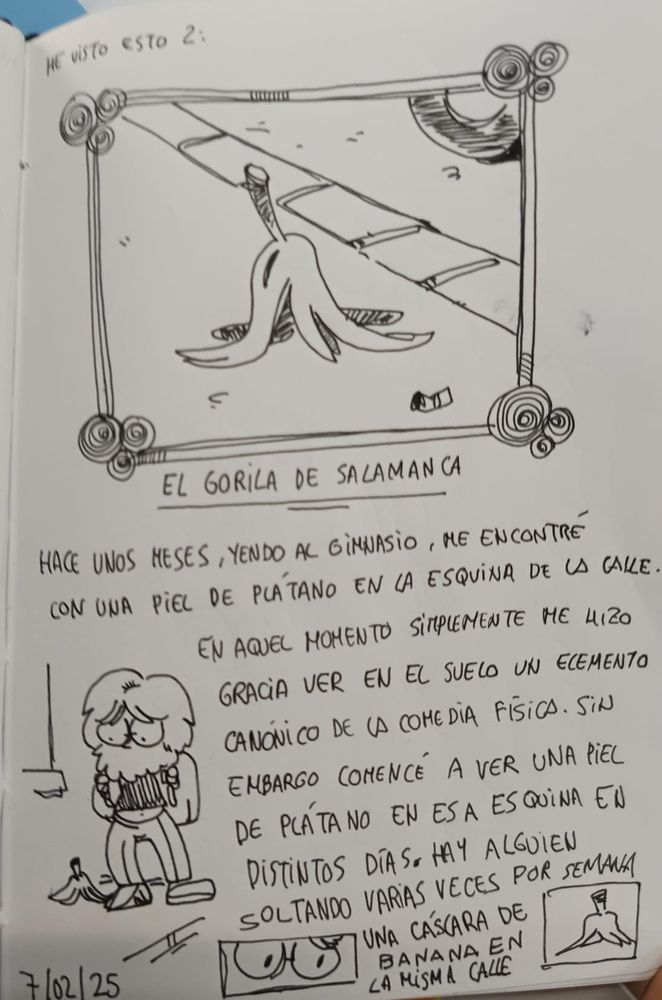 HE VISTO ESTO 2:
EL GORILA DE SALAMANCA
HACE UNOS MESES, YENDO AL GIMNASIO, ME ENCONTRÉ
CON UNA PIEL DE PLÁTANO EN LA ESQUINA DE LA CALLE.
EN AQUEL MOMENTO SIMPLEMENTE ME HIZO
GRACIA VER EN EL SUELO UN ELEMENTO
CANÓNICO DE LA COMEDIA FÍSICA. SIN
EMBARGO COMENCÉ A VER UNA PIEL
DE PLÁTANO EN ESA ESQUINA EN
DISTINTOS DÍAS. HAY ALGUIEN
SOLTANDO VARIAS VECES POR SEMANA
UNA CÁSCARA DE
BANANA EN
LA MISMA CALLE
7/02/25